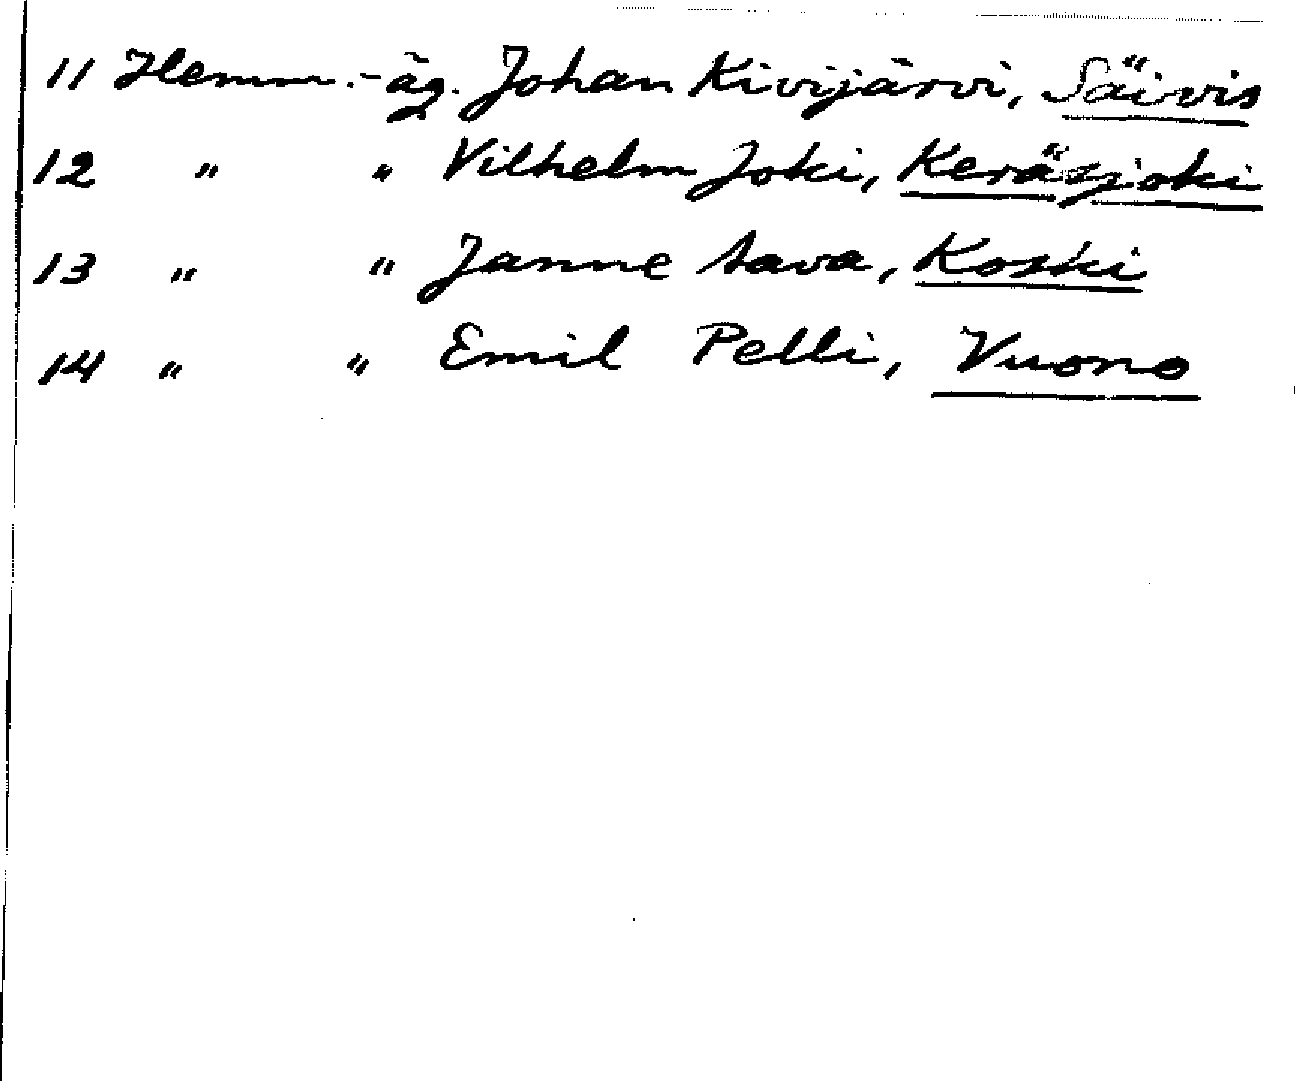 11 Hemm.-äg. Johan Kivijärvi, Säivis
12 " " Vilhelm Joki, Keräsjoki
13 " " Janne Aava, Koski
14 " " Emil Pelli, Vuono